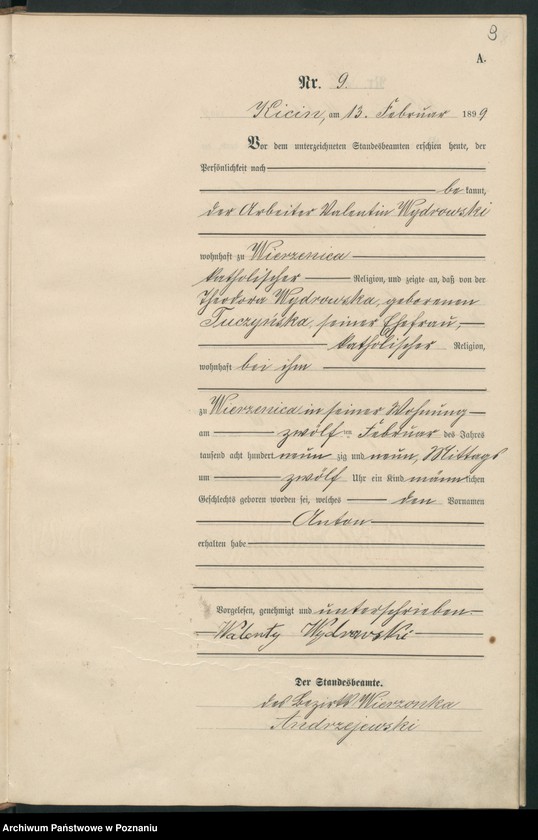 9
A.
Nr. 9.
Kicin, am 13. Februar 1899
Vor dem unterzeichneten Standesbeamten erschien heute, der
Persönlichkeit nach
bekannt,
der Arbeiter Valentin Wydrowski
wohnhaft zu Wierzenica
katholischer Religion, und zeigte an, daß von der
Theodora Wydrowska, geborenen
Tuczyńska, seiner Ehefrau,
katholischer Religion,
wohnhaft bei ihm
zu Wierzenica in seiner Wohnung
am zwölften Februar des Jahres
tausend acht hundert neunzig und neun, Mittags
um zwölf Uhr ein Kind männlichen
Geschlechts geboren worden sei, welches den Vornamen
Anton
erhalten habe
Vorgelesen, genehmigt und unterschrieben
Walenty Wydrowski
Der Standesbeamte.
des Bezirks Wierzonka
Andrzejewski
Archiwum Państwowe w Poznaniu